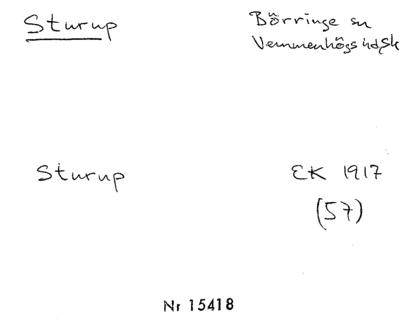 Sturup
Börringe sn
Vemmenhögs hd, Sk
Sturup
EK 1917
(57)
Nr 15418